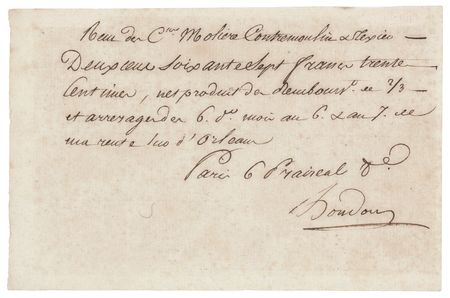 Recu des C.ens Molière Contremoulin &
Deux Cens Soixante Sept francs trente
Centimes, net produit de Rembours.t de 2/3
et arrerages des 6 d.ers mois an 6. & an 7. de
ma rente sur d'Orleans
Paris 6 Praireal 8.e
Houdon